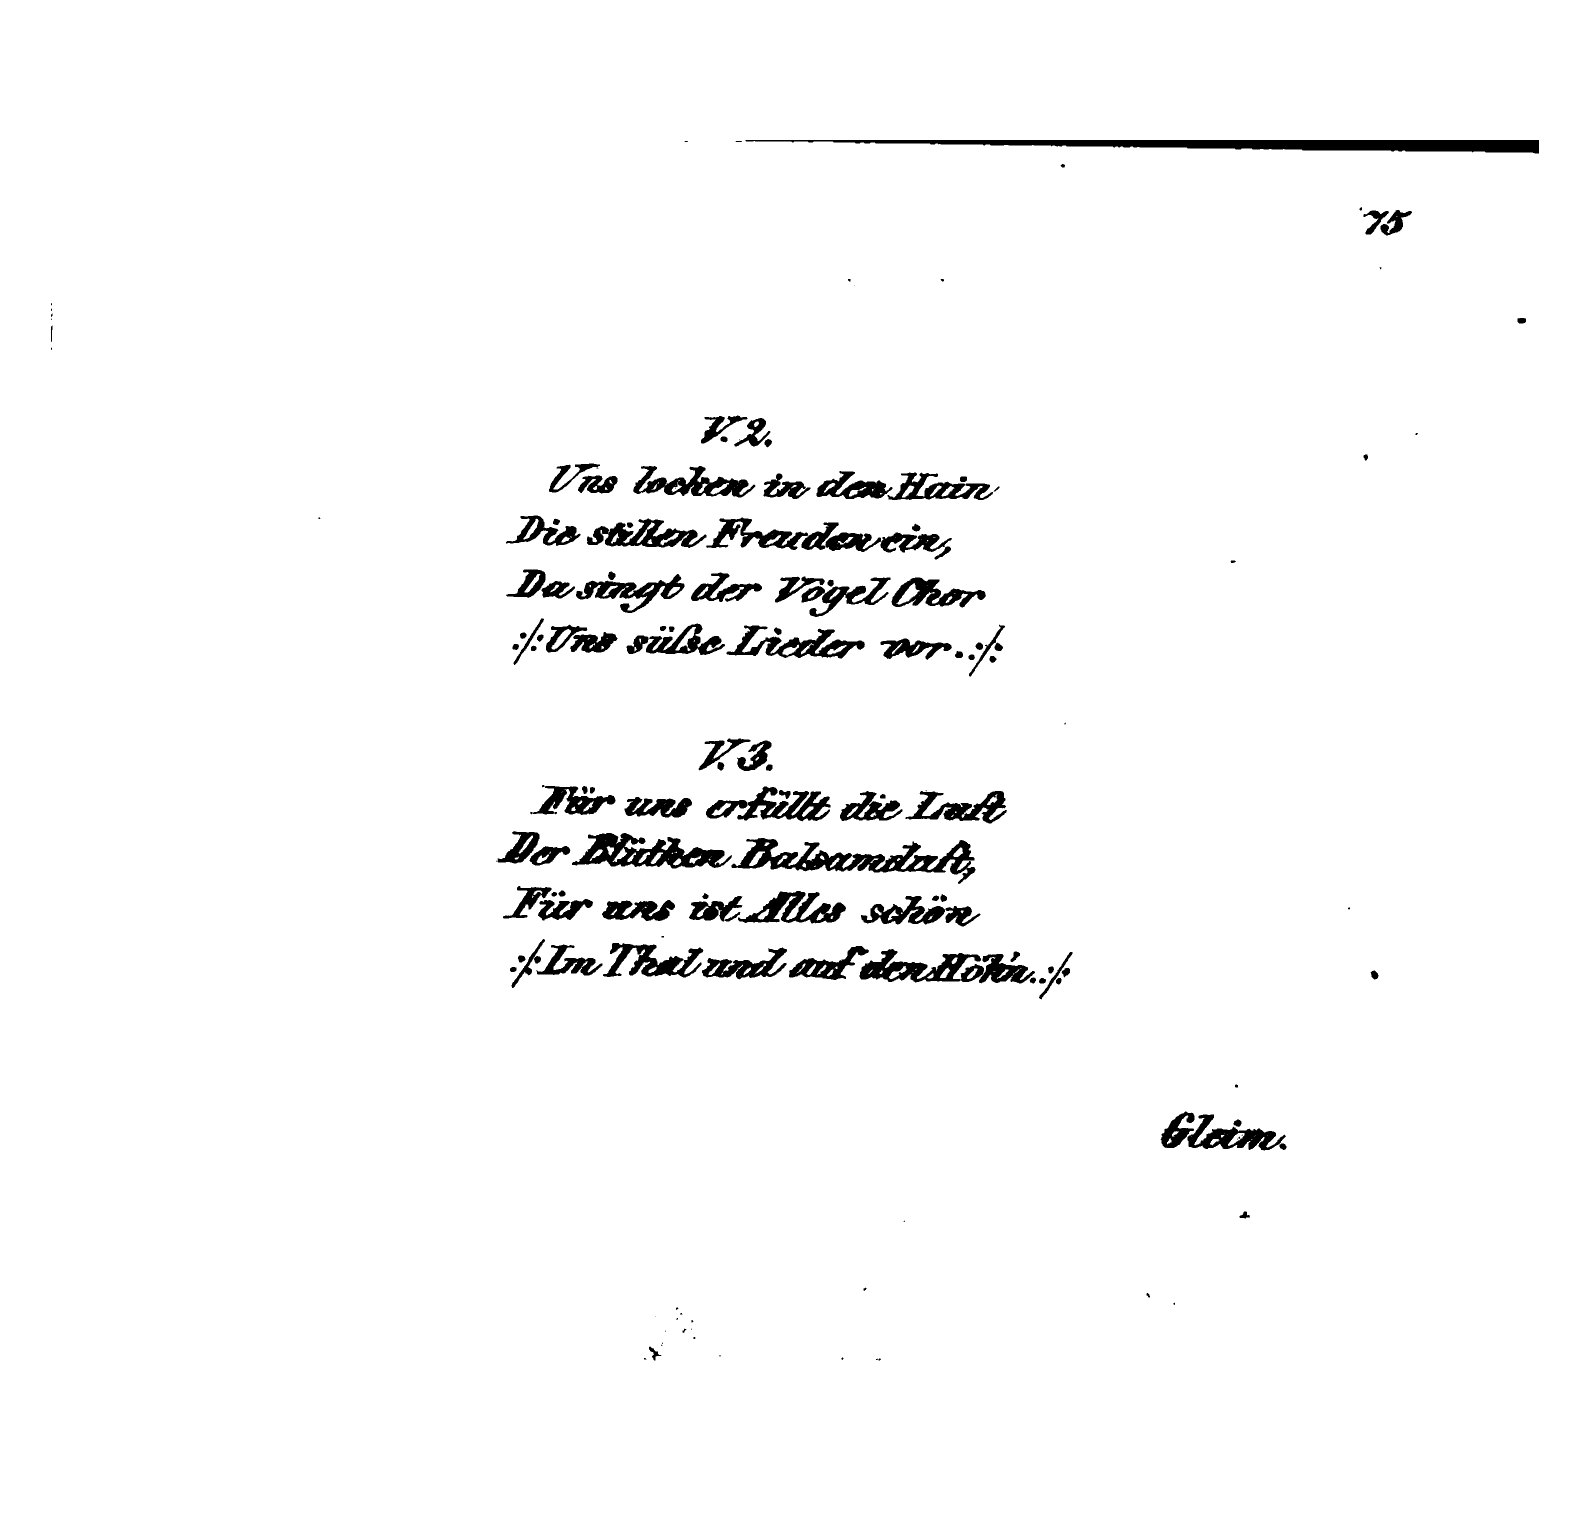 75
V. 2.
Uns locken in den Hain
Die stillen Freuden ein,
Da singt der Vögel Chor
:/: Uns süße Lieder vor. :/:
V. 3.
Für uns erfüllt die Luft
Der Blüthen Balsamduft,
Für uns ist Alles schön
:/: Im Thal und auf den Höh'n. :/:
Gleim.